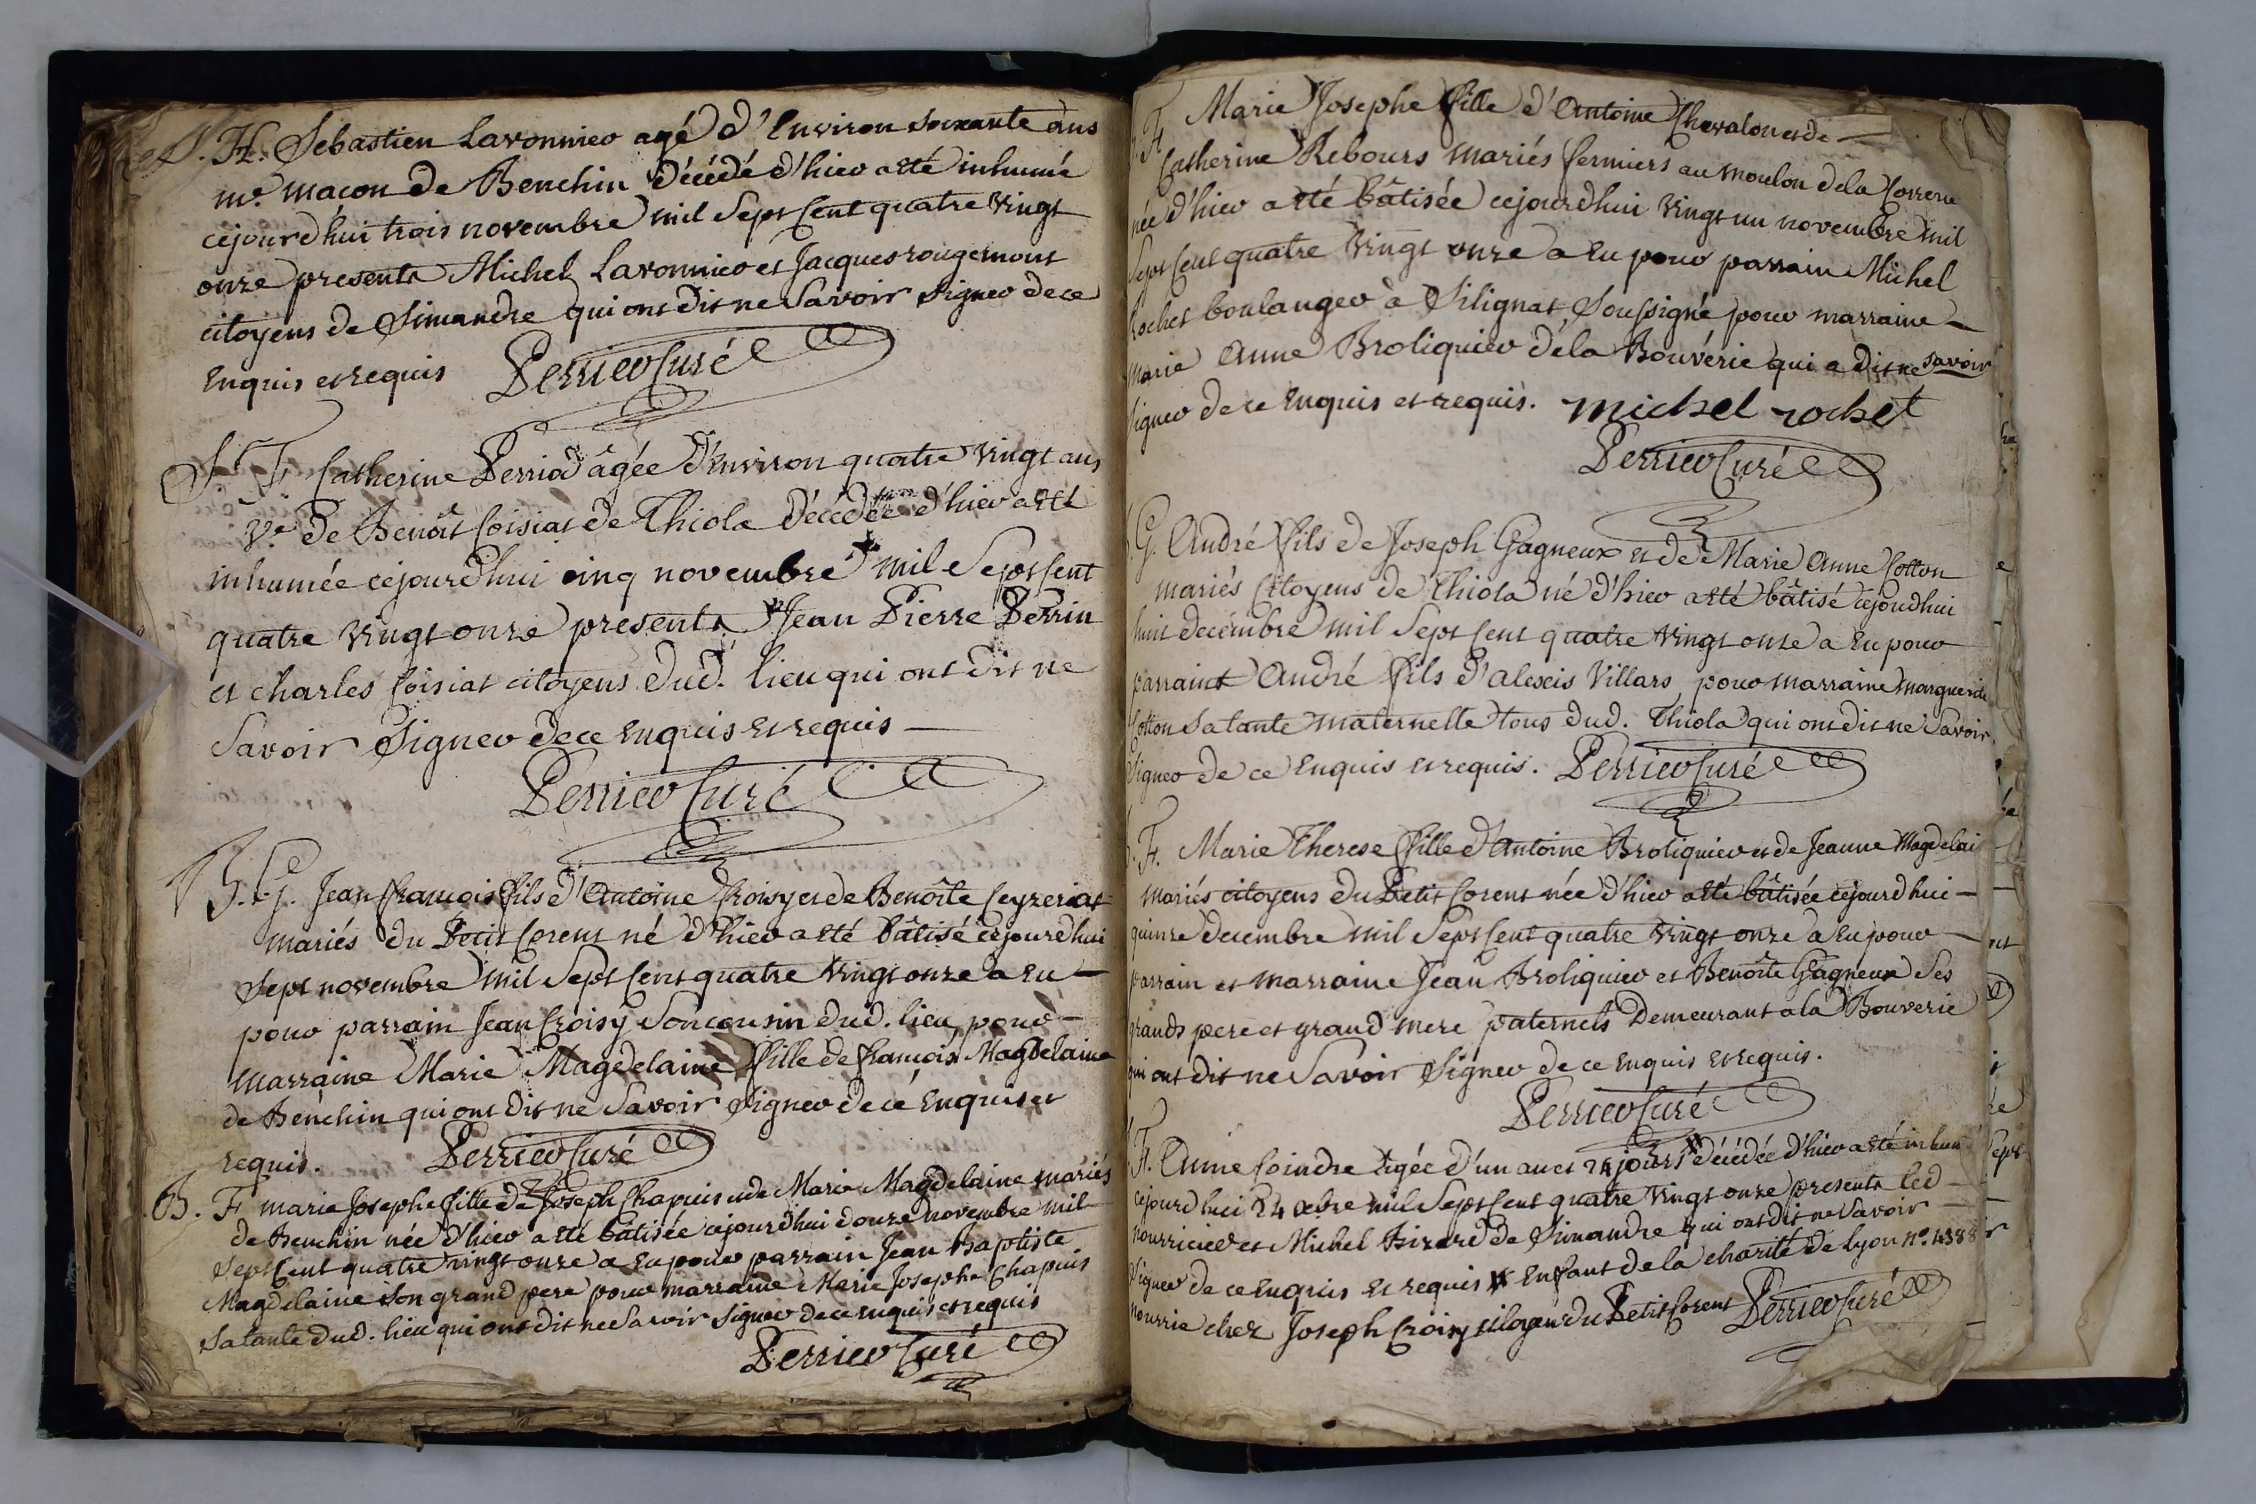 S. H. Sébastien Lavonnier agé d'Environ soixante ans
me. maçon de Benchin décédé d'hier a été inhumé
cejourd'hui trois novembre mil sept cent quatre vingt
onze presents Michel Lavonnier et Jacques rougemont
citoyens de Simandre qui ont dit ne savoir signer de ce
Enquis et requis Perrier Curé
S. F. Catherine Perriod âgée d'Environ quatre vingt ans
ve. de Benoît Coisiat de Thiola décédée d'hier a été
inhumée cejourd'hui cinq novembre mil sept cent
quatre vingt onze presents Jean Pierre Perrin
et charles Coisiat citoyens dud. lieu qui ont dit ne
savoir signer de ce enquis et requis
Perrier Curé
B. G. Jean françois fils d'Antoine Croisy et de Benoîte Ceyzeriat
mariés du Petit Corent né d'hier a été bâtisé cejourd'hui
sept novembre mil sept cent quatre vingt onze a Eu
pour parrain Jean Croisy son cousin dud. lieu, pour
marraine Marie Magdelaine fille de françois Magdelaine
de Benchin qui ont dit ne savoir signer de ce Enquis et
requis. Perrier Curé
B. F. marie Josephe fille de Joseph Chapuis et de Marie Magdelaine mariés
de Benchin née d'hier a été bâtisée cejourd'hui douze novembre mil
sept cent quatre vingt onze a Eu pour parrain Jean Baptiste
Magdelaine son grand pere pour marraine Marie Josephe Chapuis
sa tante dud. lieu qui ont dit ne savoir signer de ce enquis et requis
Perrier Curé
F. Marie Josephe fille d'Antoine Chevalon et de
Catherine Rebours mariés fermiers au moulon de la Correrie
née d'hier a été bâtisée cejourd'hui vingt un novembre mil
sept cent quatre vingt onze a Eu pour parrain Michel
Rochet boulanger à Silignat soussigné pour marraine
marie Anne Broliquier de la Bouverie qui a dit ne savoir
signer de ce Enquis et requis. michel rochet
Perrier Curé
G. André fils de Joseph Gagneux et de Marie Anne Cotton
mariés Citoyens de Thiola né d'hier a été bâtisé cejourd'hui
huit decembre mil sept cent quatre vingt onze a Eu pour
parrain André fils d'alexis Villars pour marraine marguerite
Cotton sa tante maternelle tous dud. Thiola qui ont dit ne savoir
signer de ce Enquis et requis. Perrier Curé
F. Marie Therese fille d'Antoine Broliquier et de Jeanne Magdelai
mariés citoyens du Petit Corent née d'hier a été bâtisée cejourd'hui
quinze decembre mil sept cent quatre vingt onze a Eu pour
parrain et marraine Jean Broliquier et Benoîte Gagneux ses
grands pere et grand mere paternels Demeurant a la Bouverie
qui ont dit ne savoir signer de ce enquis et requis.
Perrier Curé
F. Anne Coindre agée d'un an et 24 jours décédée d'hier a été inhum
cejourd'hui 24 xbre mil sept cent quatre vingt onze presents led
nourricier et Michel Bizard de Simandre qui ont dit ne savoir
signer de ce enquis et requis # Enfant de la charité de Lyon no. 4388
nourrie chez Joseph Croisy citoyen du Petit Corent Perrier Curé